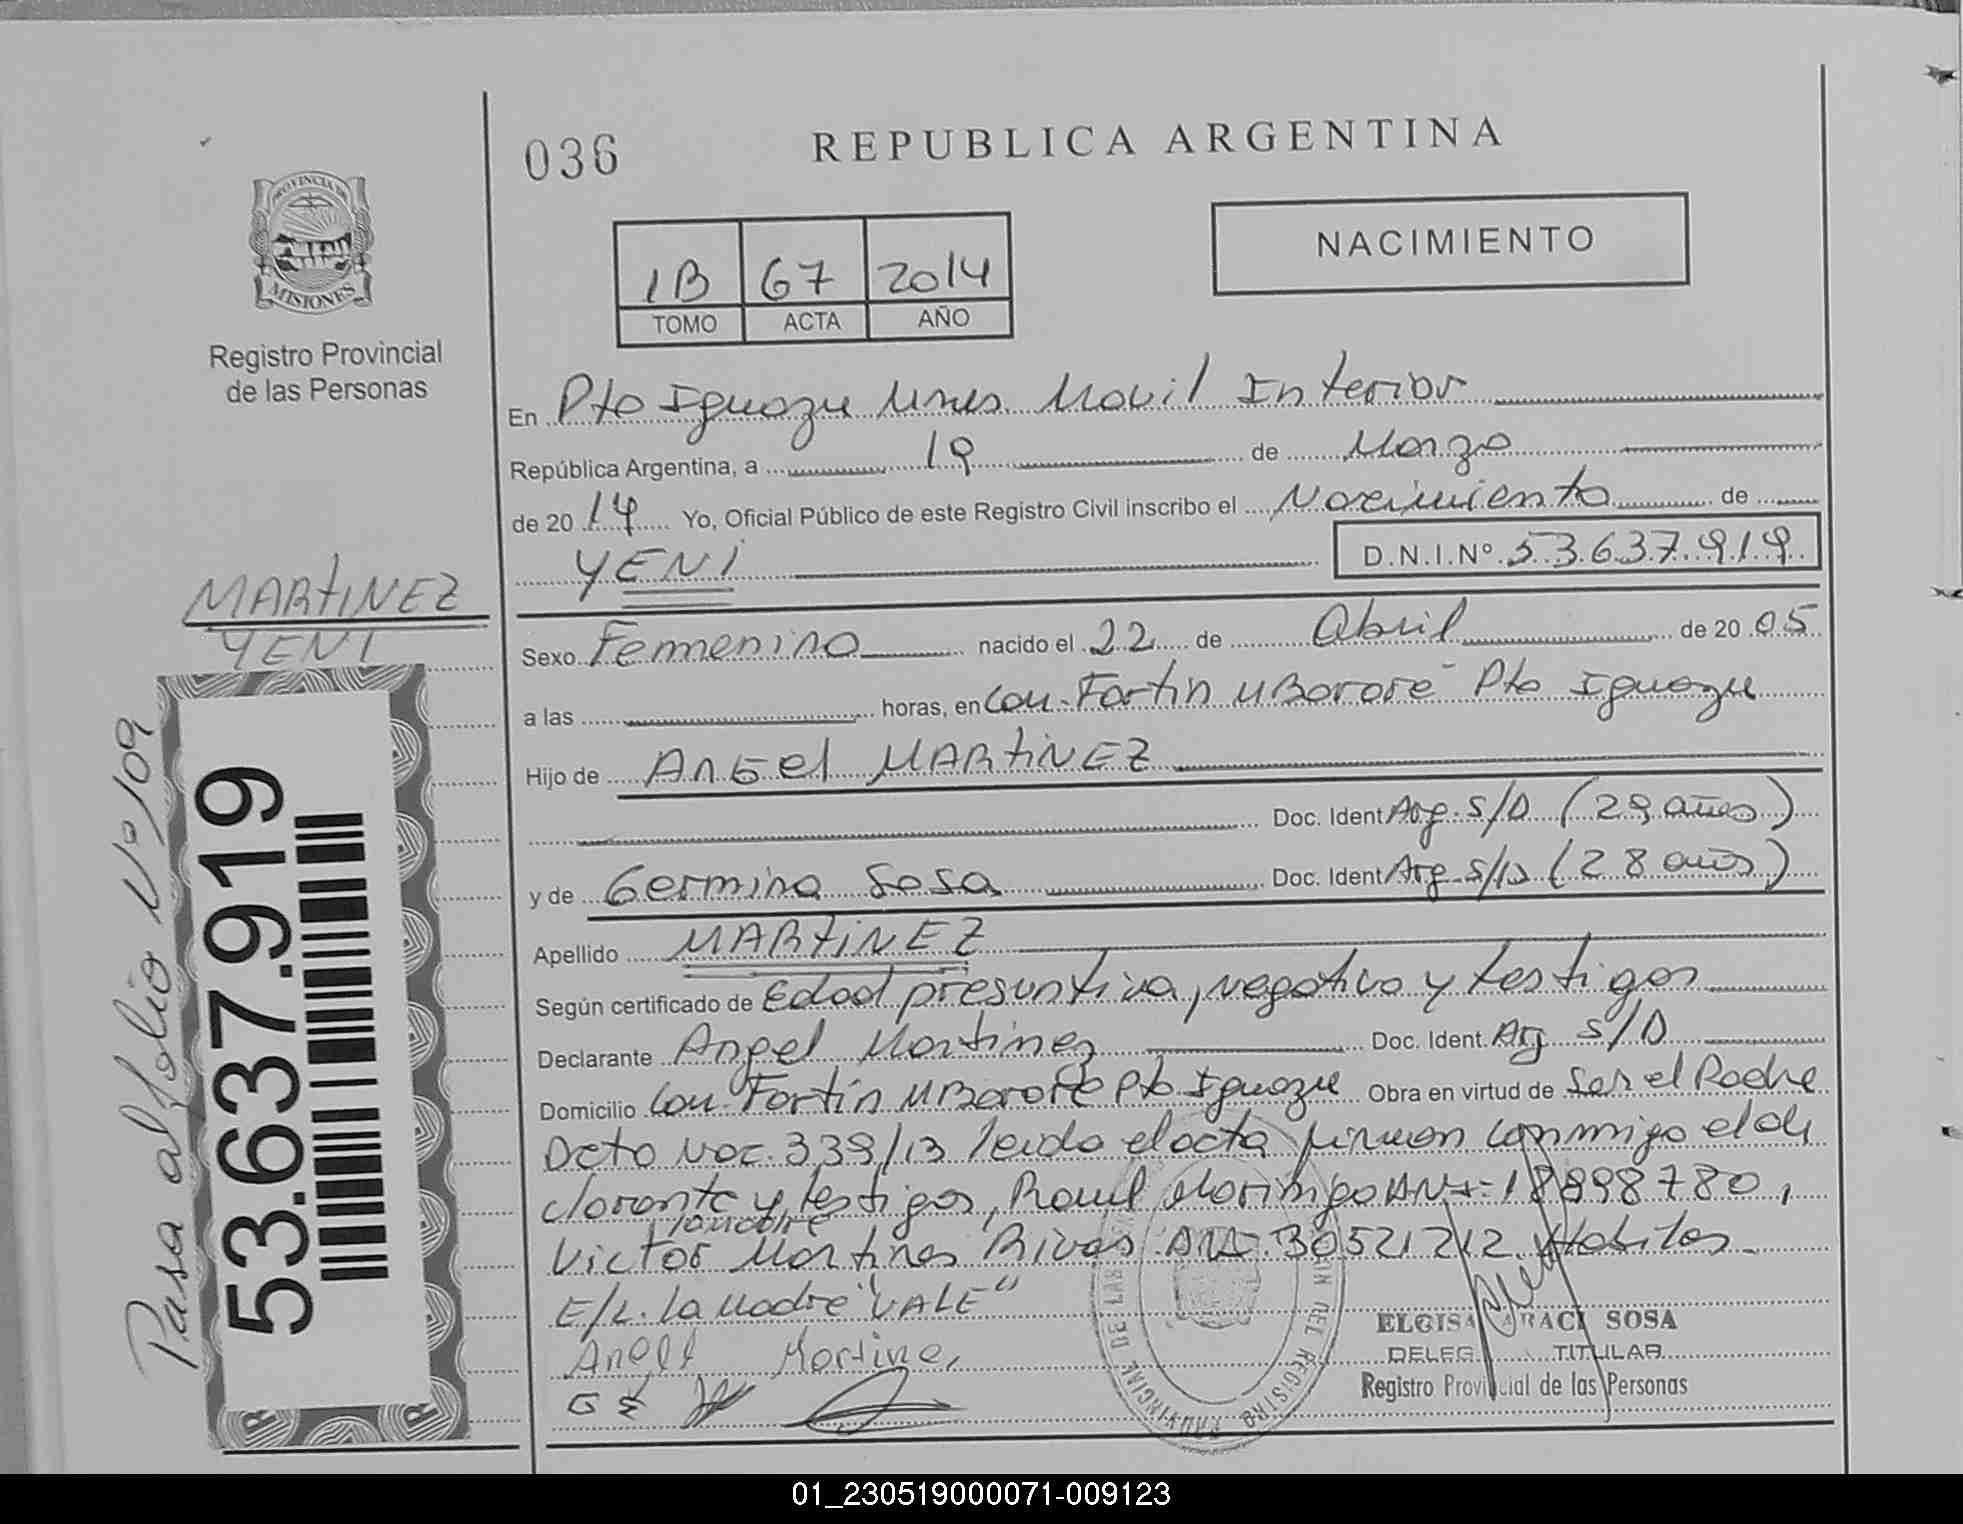 036
REPUBLICA ARGENTINA
PROVINCIA DE
MISIONES
Registro Provincial
de las Personas
NACIMIENTO
1B 67 2014
TOMO ACTA AÑO
En Pto Iguazu Mnes Movil Interior
República Argentina, a 19 de Marzo
de 2014 Yo, Oficial Público de este Registro Civil inscribo el Nacimiento de
YENI D.N.I.Nº 53.637.919
MARTINEZ
YENI
Sexo Femenino nacido el 22 de Abril de 2005
a las horas, en Com. Fortin MBororé Pto Iguazu
Hijo de Angel MARTINEZ
Doc. Ident Arg. S/D (29 años)
y de Germina Sosa Doc. Ident Arg S/D (28 años)
Apellido MARTINEZ
Según certificado de Edad presuntiva, negativo y testigos
Declarante Angel Martinez Doc. Ident. Arg S/D
Domicilio Com Fortín MBororé Pto Iguazu Obra en virtud de Ser el Padre
Dcto Nac. 339/13 leido el acta firman conmigo el de
clarante y testigos, Raul Morinigo DNI: 18898780,
la madre
Victor Martines Rivas DNI 30521212 Habiles
E/L. la Madre "VALE"
Anell Martine
G S
ELGISA ARACI SOSA
DELEG. TITULAR
Registro Provincial de las Personas
Pasa al folio Nº 109
53.637.919
01_230519000071-009123